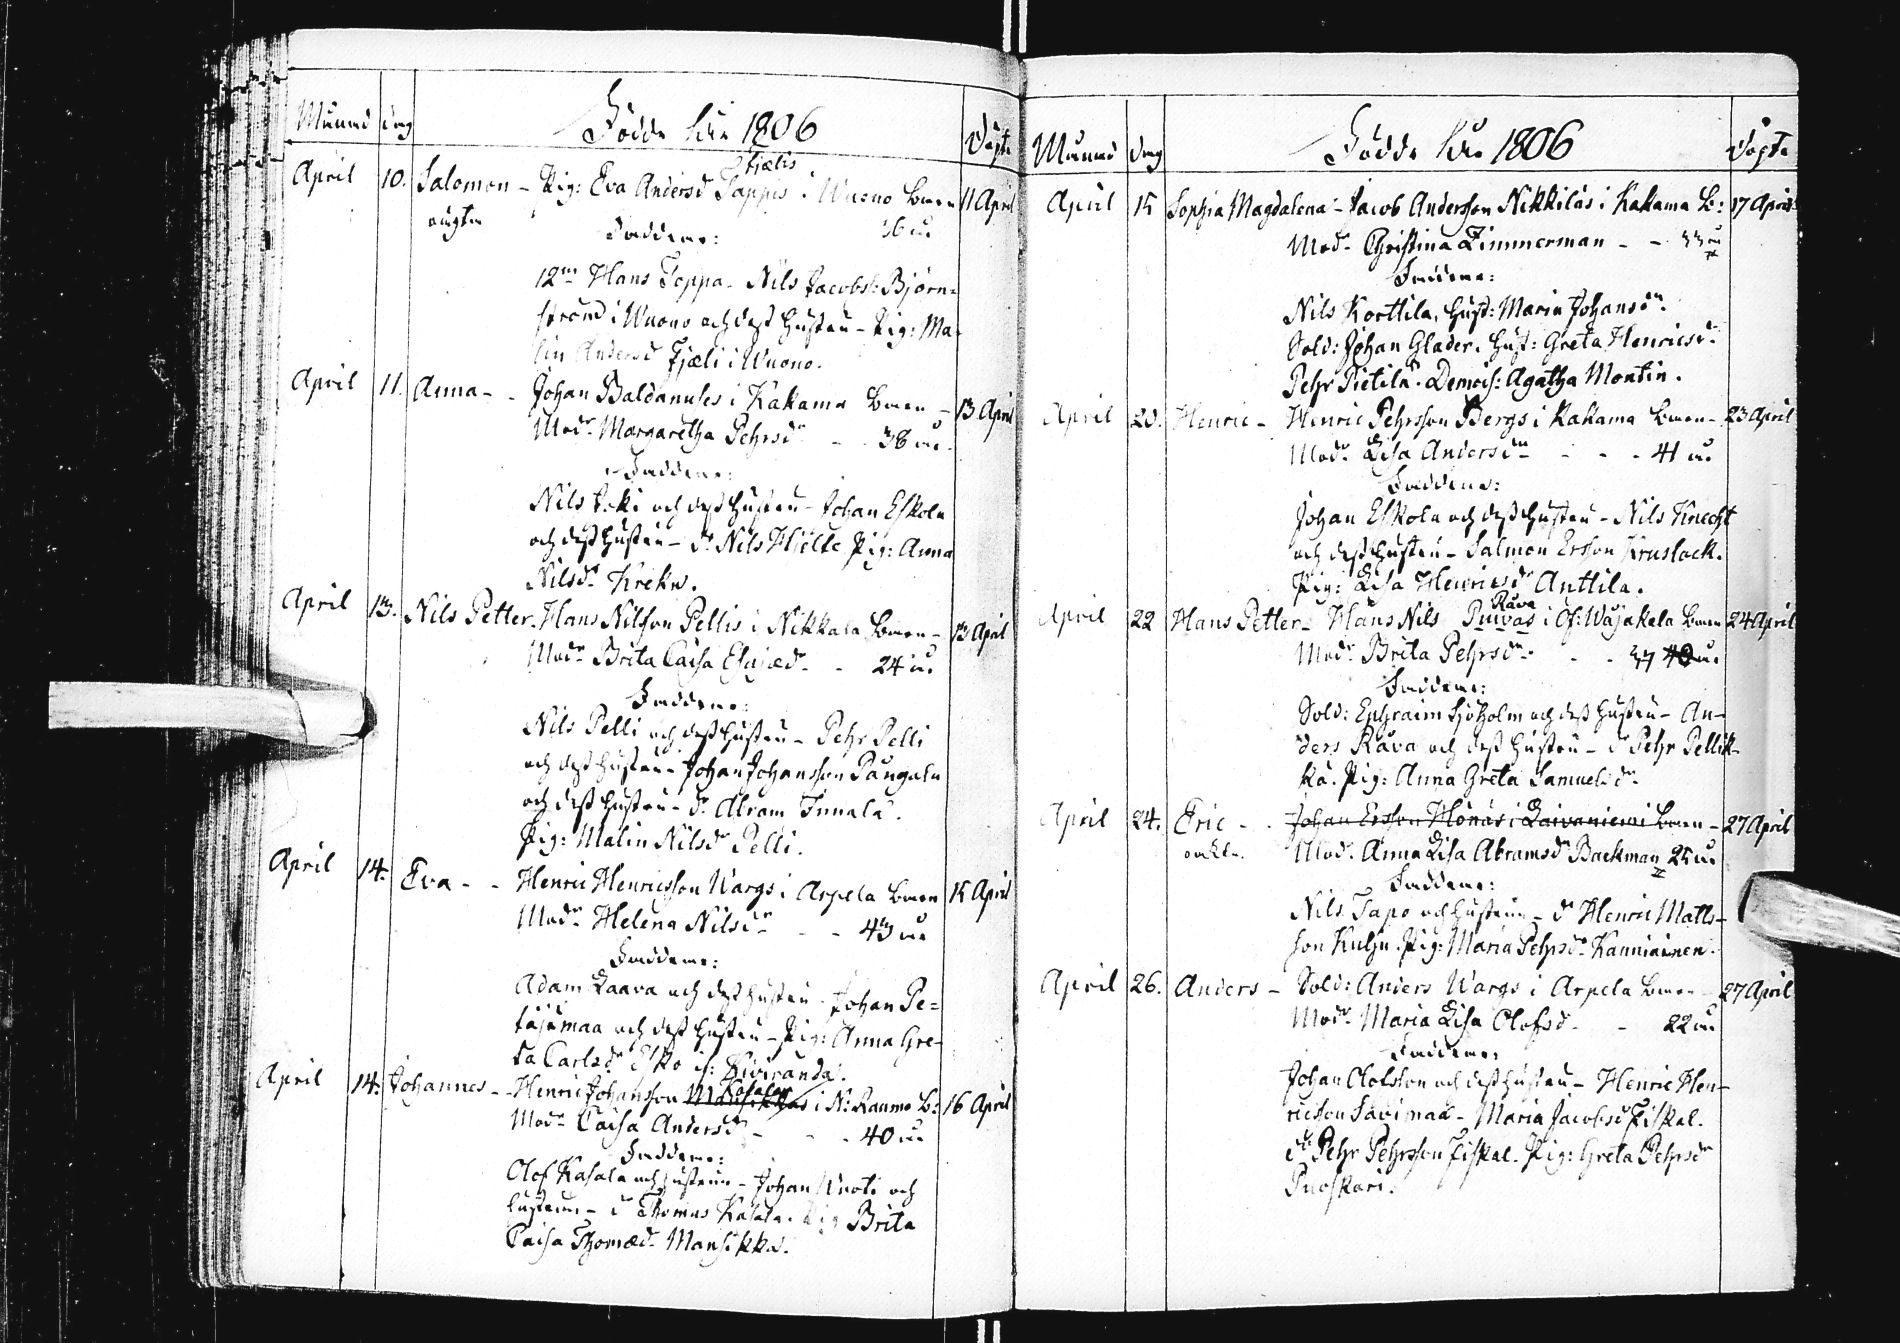 Månad dag Födde åhr 1806 Döpte
April 10. Salomon - Pig: Eva Andersdr Tappis i Wuono barn 11 April
Fjælis
oägta 36 år
Faddrar:
12 m Hans Toppa - Nils Jacobs: Björn=
ström i Wuono och dess hustru - Pig: Ma=
lin Andersdr Fjæli i Wuono.
April 11. Anna - - Johan Baldanules i Kakama barn - 13 April
Modr Margaretha Pehrsdr - - 38 år.
Faddrar:
Nils Joki och dess hustru - Johan Eskola
och dess hustru - dr Nils Hjelte Pig: Anna
Nilsdr Kreku.
April 13. Nils Petter - Hans Nilsson Pellis i Nikkala barn - 13 April
Modr Brita Caisa Esaiædr - - 24 år
Faddrar:
Nils Pelli och dess hustru - Pehr Pelli
och dess hustru - Johan Johansson Pangalu
och dess hustru - dr Abram Innala.
Pig: Malin Nilsdr Pelli.
April 14. Eva - - Henric Henricsson Wargs i Arpela barn 15 April
Modr Helena Nilsdr - - 43 år
Faddrar:
Adam Laava och dess hustru - Johan Pe=
täjämaa och dess hustru - Pig: Anna Gre=
ta Carlsdr Esko if: Kiviranda.
April 14. Johannes - Henric Johansson Kasalas i N: Raumo b: 16 April
Modr Caisa Andersdr - - - 40 år
Faddrar:
Olof Kasala och hustrun - Johan Nuoti och
hustrun - dr Thomas Kasala. Pig Brita
Caisa Thomædr Mansikka.
Månad dag Födde åhr 1806 Döpte
April 15 Sophia Magdalena - Jacob Andersson Nikkilas i Kakama b: 17 April
Modr Christina Zimmerman - - 33 år
Faddrar:
Nils Korttila, hust: Maria Johansdr
Sold: Johan Glader, hust: Greta Henricsdr
Pehr Pietilä. Demois: Agatha Montin.
April 20. Henric - Henric Pehrsson Bergs i Kakama barn - 23 April
Modr Lisa Andersdr - - - 41 år
Faddrar:
Johan Eskola och dess hustru - Nils Knecht
och dess hustru - Salmon Ersson Kruslock.
Pig: Lisa Henricsdr Anttila.
April 22 Hans Petter - Hans Nils Puivas i Öf: Wojakala barn 24 April
Råva
Modr Brita Pehrsdr - - 37 40 år
Faddrar:
Sold: Ephraim Sjöholm och dess hustru - An-
ders Råva och dess hustru - dr Pehr Pellik-
ka. Pig: Anna Greta Samuelsdr.
April 24. Eric - - Johan Ersson Hönäs i Laivaniemi barn - 27 April
oäkta. Modr Anna Lisa Abramsdr Backman 25 år
Faddrar:
Nils Tapo och hustrun - dr Henric Matts-
son Kulju. Pig: Maria Pehrsdr Kanniainen.
April 26. Anders - Sold: Anders Wargs i Arpela barn - 27 April
Modr Maria Lisa Olofsdr - 22 år
Faddrar:
Johan Olofsson och dess hustru - Henric Hen-
ricsson Savimaa - Maria Jacobsdr Fiskal.
dr Pehr Pehrsson Fiskal. Pig: Greta Pehrsdr
Puoskari.